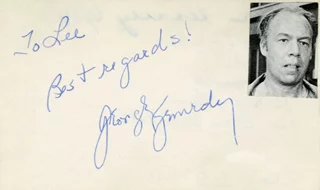 To Lee
Best regards!
George Kennedy